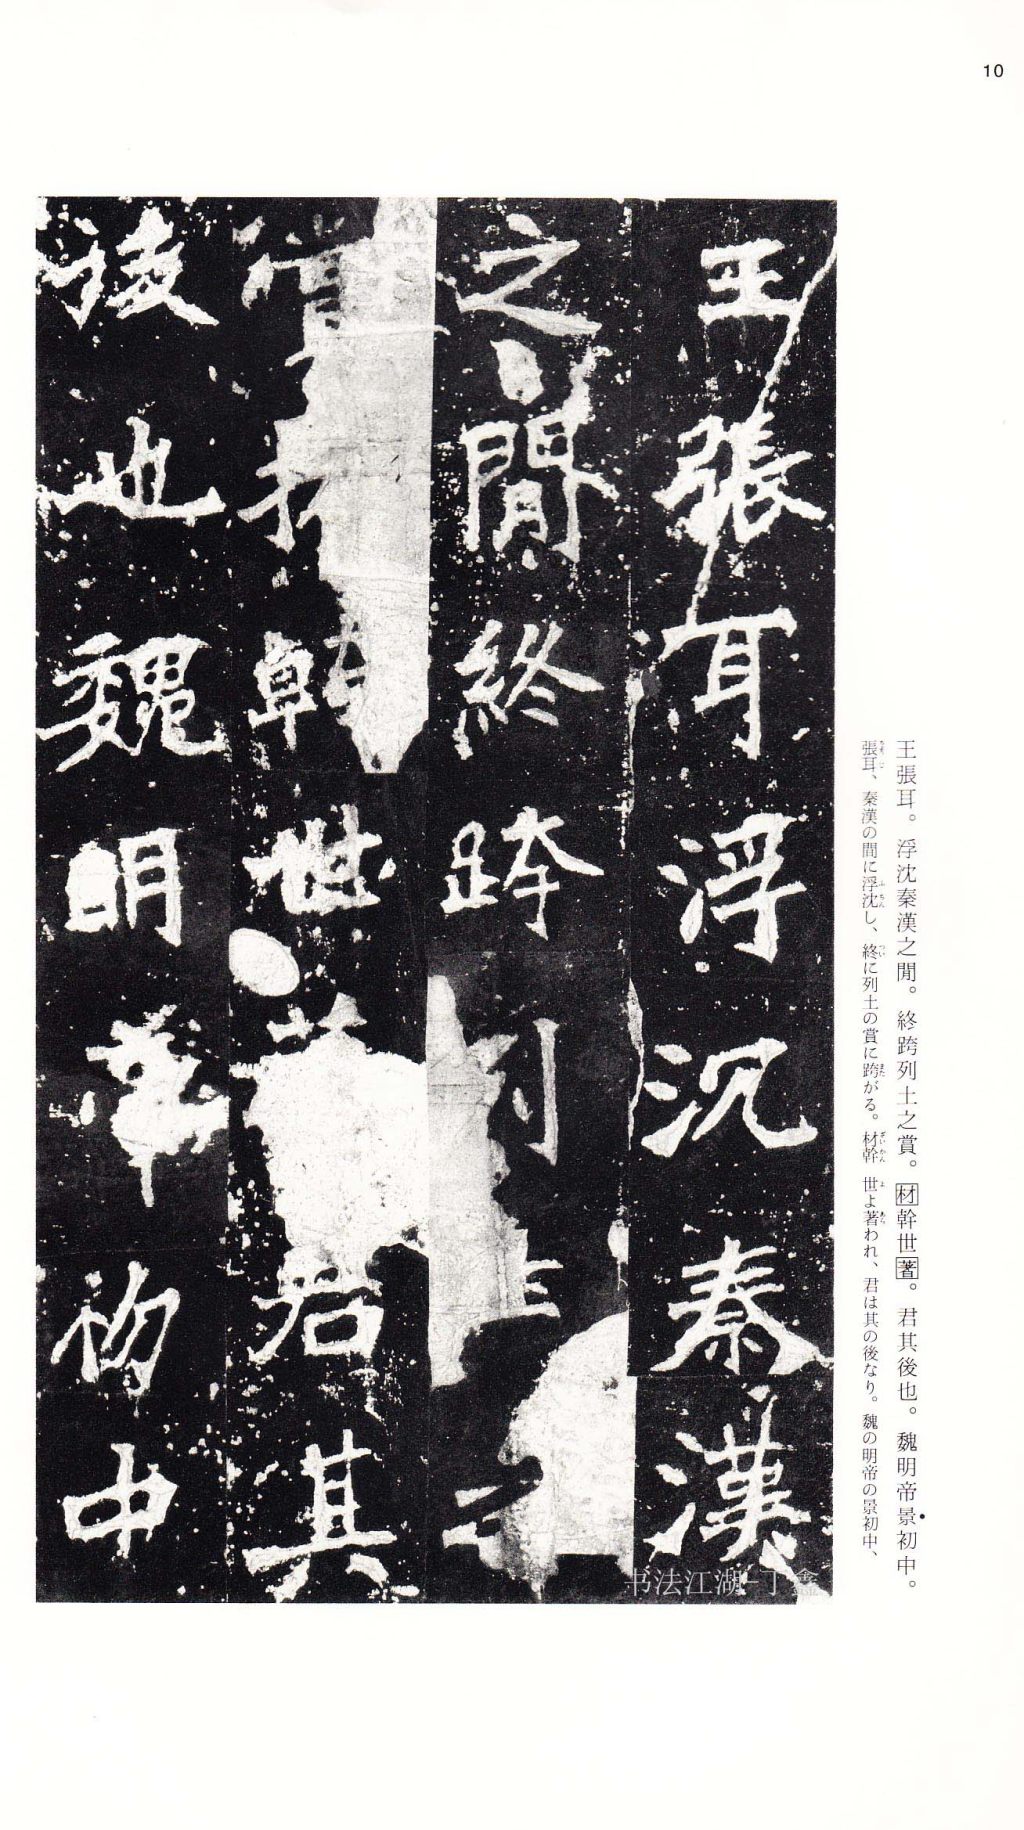 10
王張耳浮沉秦漢
之閒終跨列土之
賞幹世君其
後也魏明帝初中
王張耳。浮沈秦漢之閒。終跨列土之賞。材幹世著。君其後也。魏明帝景初中。
張耳、秦漢の間に浮沈し、終に列土の賞に跨がる。材幹 世よ著われ、君は其の後なり。魏の明帝の景初中、
书法江湖-丁鑫